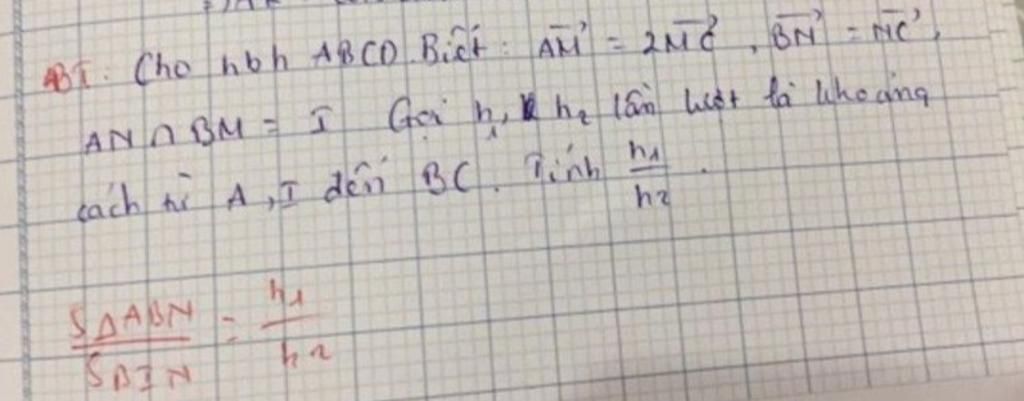 BT: Cho hbh ABCD. Biết: \overrightarrow{AM} = 2\overrightarrow{MC}, \overrightarrow{BN} = \overrightarrow{NC},
AN ∩ BM = I Gọi h₁, h₂ lần lượt là khoảng
cách từ A, I đến BC. Tính \frac{h_1}{h_2}.
\frac{S_{ΔABN}}{S_{BIN}} = \frac{h_1}{h_2}